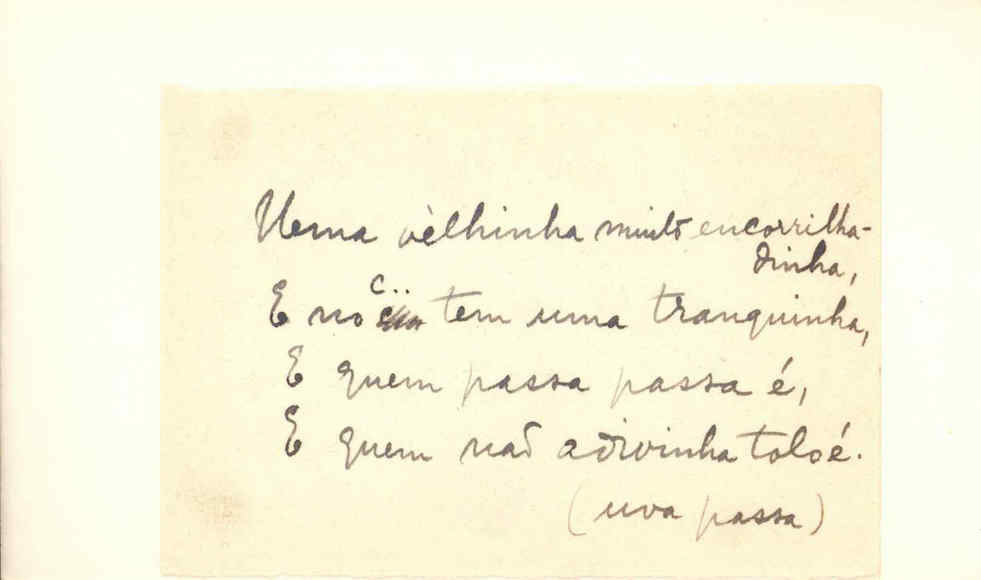 Uma vèlhinha muito encorrilha-
dinha,
E no c.. tem uma tranquinha,
E quem passa passa é,
E quem não adivinha tolo é.
(uva passa)